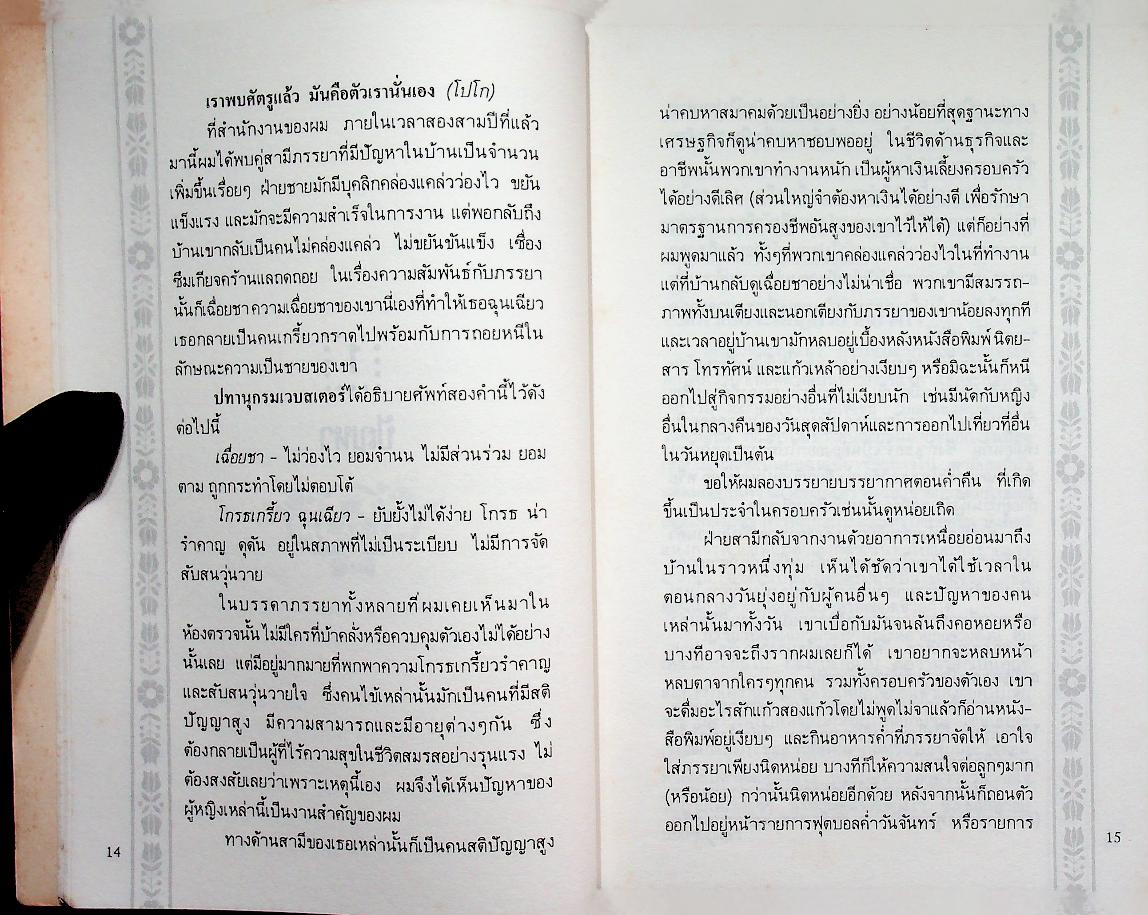 เราพบศัตรูแล้ว มันคือตัวเรานั่นเอง (โปโก)
ที่สำนักงานของผม ภายในเวลาสองสามปีที่แล้ว
มานี้ผมได้พบคู่สามีภรรยาที่มีปัญหาในบ้านเป็นจำนวน
เพิ่มขึ้นเรื่อยๆ ฝ่ายชายมักมีบุคลิกคล่องแคล่วว่องไว ขยัน
แข็งแรง และมักจะมีความสำเร็จในการงาน แต่พอกลับถึง
บ้านเขากลับเป็นคนไม่คล่องแคล่ว ไม่ขยันขันแข็ง เซื่อง
ซึมเกียจคร้านแลถดถอย ในเรื่องความสัมพันธ์กับภรรยา
นั้นก็เฉื่อยชา ความเฉื่อยชาของเขานี่เองที่ทำให้เธอฉุนเฉียว
เธอกลายเป็นคนเกรี้ยวกราดไปพร้อมกับการถอยหนีใน
ลักษณะความเป็นชายของเขา
ปทานุกรมเวบสเตอร์ได้อธิบายศัพท์สองคำนี้ไว้ดัง
ต่อไปนี้
เฉื่อยชา – ไม่ว่องไว ยอมจำนน ไม่มีส่วนร่วม ยอม
ตาม ถูกกระทำโดยไม่ตอบโต้
โกรธเกรี้ยว ฉุนเฉียว – ยับยั้งไม่ได้ง่าย โกรธ น่า
รำคาญ ดุดัน อยู่ในสภาพที่ไม่เป็นระเบียบ ไม่มีการจัด
สับสนวุ่นวาย
ในบรรดาภรรยาทั้งหลายที่ผมเคยเห็นมาใน
ห้องตรวจนั้น ไม่มีใครที่บ้าคลั่งหรือควบคุมตัวเองไม่ได้อย่าง
นั้นเลย แต่มีอยู่มากมายที่พกพาความโกรธเกรี้ยวรำคาญ
และสับสนวุ่นวายใจ ซึ่งคนไข้เหล่านั้นมักเป็นคนที่มีสติ
ปัญญาสูง มีความสามารถและมีอายุต่างๆกัน ซึ่ง
ต้องกลายเป็นผู้ที่ไร้ความสุขในชีวิตสมรสอย่างรุนแรง ไม่
ต้องสงสัยเลยว่าเพราะเหตุนี้เอง ผมจึงได้เห็นปัญหาของ
ผู้หญิงเหล่านี้เป็นงานสำคัญของผม
ทางด้านสามีของเธอเหล่านั้นก็เป็นคนสติปัญญาสูง
14
น่าคบหาสมาคมด้วยเป็นอย่างยิ่ง อย่างน้อยที่สุดฐานะทาง
เศรษฐกิจก็ดูน่าคบหาชอบพออยู่ ในชีวิตด้านธุรกิจและ
อาชีพนั้นพวกเขาทำงานหนัก เป็นผู้หาเงินเลี้ยงครอบครัว
ได้อย่างดีเลิศ (ส่วนใหญ่จำต้องหาเงินได้อย่างดี เพื่อรักษา
มาตรฐานการครองชีพอันสูงของเขาไว้ให้ได้) แต่ก็อย่างที่
ผมพูดมาแล้ว ทั้งๆที่พวกเขาคล่องแคล่วว่องไวในที่ทำงาน
แต่ที่บ้านกลับดูเฉื่อยชาอย่างไม่น่าเชื่อ พวกเขามีสมรรถ-
ภาพทั้งบนเตียงและนอกเตียงกับภรรยาของเขาน้อยลงทุกที
และเวลาอยู่บ้านเขามักหลบอยู่เบื้องหลังหนังสือพิมพ์ นิตย-
สาร โทรทัศน์ และแก้วเหล้าอย่างเงียบๆ หรือมิฉะนั้นก็หนี
ออกไปสู่กิจกรรมอย่างอื่นที่ไม่เงียบนัก เช่นมีนัดกับหญิง
อื่นในกลางคืนของวันสุดสัปดาห์และการออกไปเที่ยวที่อื่น
ในวันหยุดเป็นต้น
ขอให้ผมลองบรรยายบรรยากาศตอนค่ำคืน ที่เกิด
ขึ้นเป็นประจำในครอบครัวเช่นนั้นดูหน่อยเถิด
ฝ่ายสามีกลับจากงานด้วยอาการเหนื่อยอ่อนมาถึง
บ้านในราวหนึ่งทุ่ม เห็นได้ชัดว่าเขาได้ใช้เวลาใน
ตอนกลางวันยุ่งอยู่กับผู้คนอื่นๆ และปัญหาของคน
เหล่านั้นมาทั้งวัน เขาเบื่อกับมันจนล้นถึงคอหอยหรือ
บางทีอาจจะถึงรากผมเลยก็ได้ เขาอยากจะหลบหน้า
หลบตาจากใครๆทุกคน รวมทั้งครอบครัวของตัวเอง เขา
จะดื่มอะไรสักแก้วสองแก้วโดยไม่พูดไม่จาแล้วก็อ่านหนัง-
สือพิมพ์อยู่เงียบๆ และกินอาหารค่ำที่ภรรยาจัดให้ เอาใจ
ใส่ภรรยาเพียงนิดหน่อย บางทีก็ให้ความสนใจต่อลูกๆมาก
(หรือน้อย) กว่านั้นนิดหน่อยอีกด้วย หลังจากนั้นก็ถอนตัว
ออกไปอยู่หน้ารายการฟุตบอลค่ำวันจันทร์ หรือรายการ
15